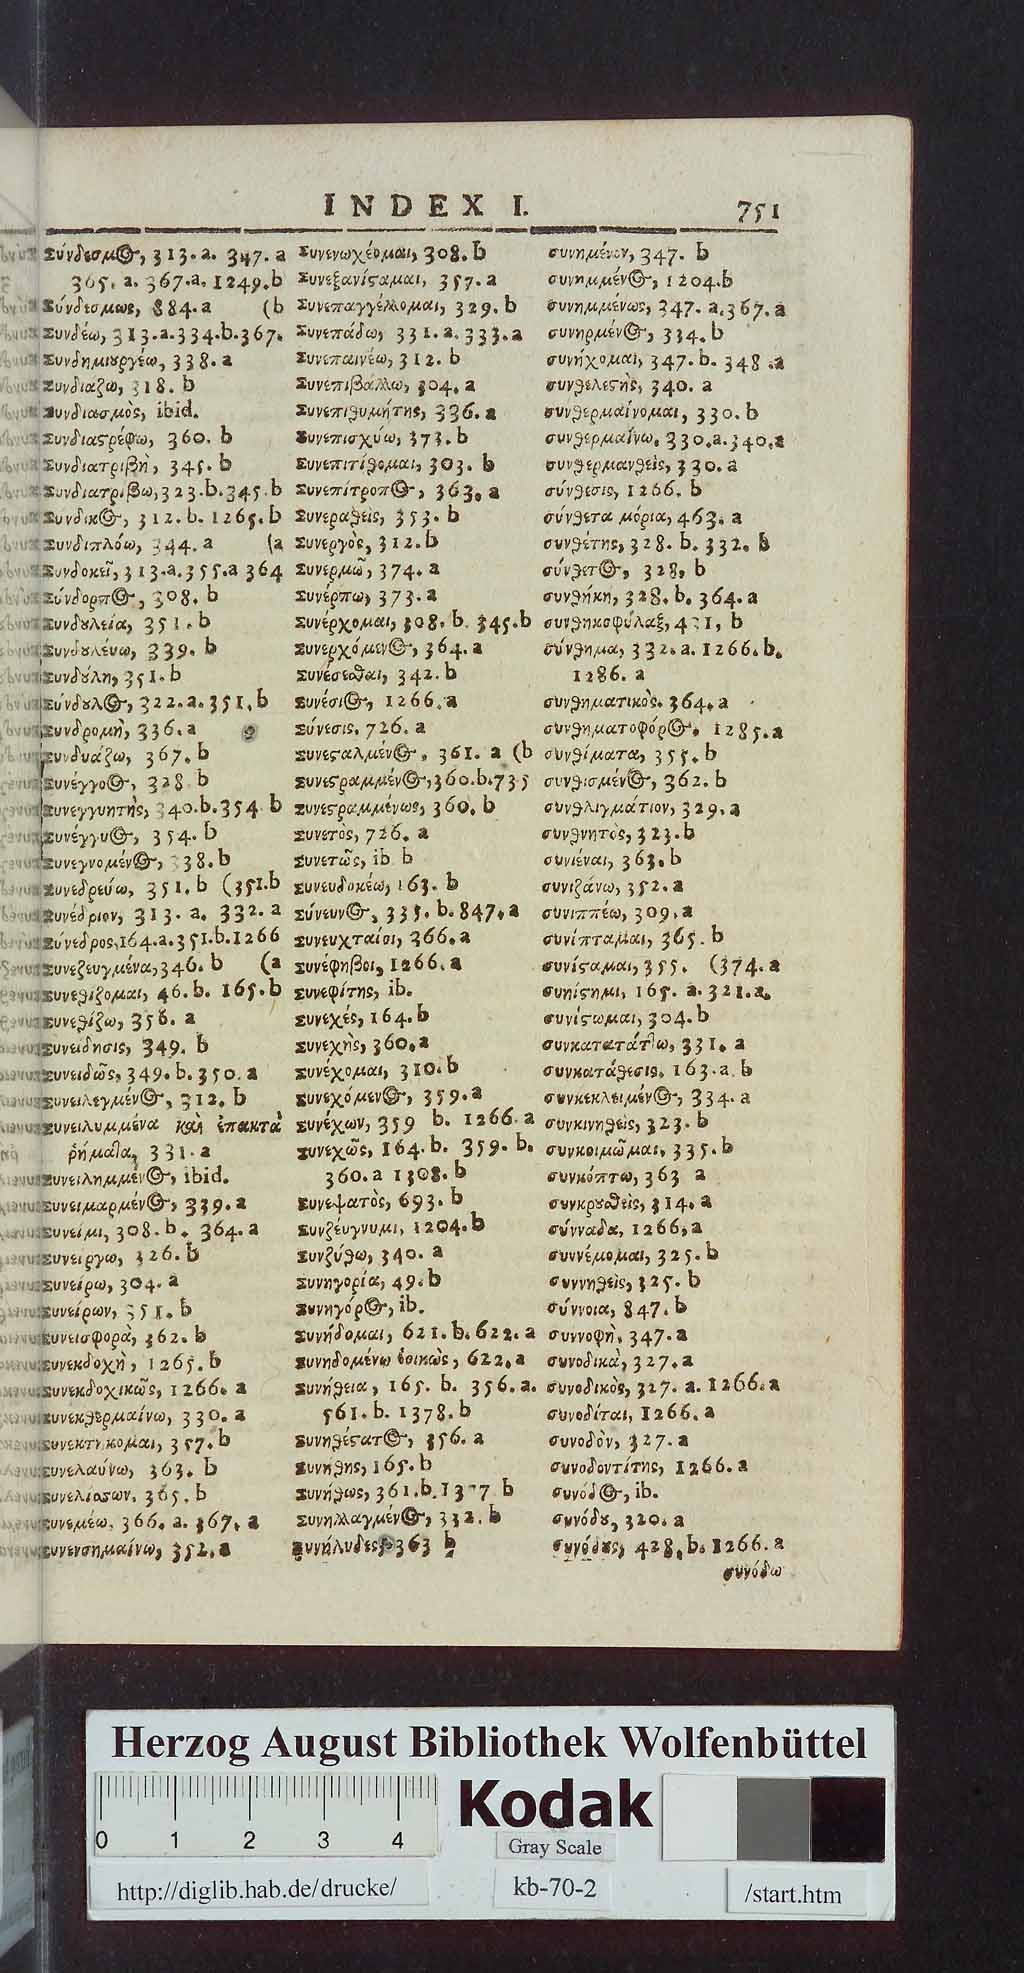 INDEX I. 751
Σύνδεσμος, 313. a. 347. a
365. a. 367. a. 1249. b
Σύνδεσμως, 884. a (b
Συνδέω, 313. a. 334. b. 367.
Συνδημιουργέω, 338. a
Συνδιαζω, 318. b
Συνδιασμὸς, ibid.
Συνδιαστρέφω, 360. b
Συνδιατριβὴ, 345. b
Συνδιατρίβω, 323. b. 345. b
Συνδικος, 312. b. 1265. b
Συνδιπλόω, 344. a (a
Συνδοκεῖ, 313. a. 355. a 364
Σύνδορπος, 308. b
Συνδουλεία, 351. b
Συνδουλέυω, 339. b
Συνδούλη, 351. b
Σύνδουλος, 322. a. 351. b
Συνδρομὴ, 336. a
Συνδυάζω, 367. b
Συνέγγος, 328 b
Συνεγγυητὴς, 340. b. 354. b
Συνέγγυος, 354. b
Συνεγνομένος, 338. b
Συνεδρεύω, 351. b (351. b
Συνέδριον, 313. a. 332. a
Σύνεδρος, 164. a. 351. b. 1266
Συνεζευγμένα, 346. b (a
Συνεθίζομαι, 46. b. 165. b
Συνεθίζω, 356. a
Συνείδησις, 349. b
Συνειδῶς, 349. b. 350. a
Συνειλεγμένος, 312. b
Συνειλυμμένα καὶ ἐπακτὰ
ῥήματα, 331. a
Συνειλημμένος, ibid.
Συνειμαρμένος, 339. a
Συνείμι, 308. b. 364. a
Συνείργω, 326. b
Συνείρω, 304. a
Συνείρων, 351. b
Συνεισφορὰ, 362. b
Συνεκδοχὴ, 1265. b
Συνεκδοχικῶς, 1266. a
Συνεκθερμαίνω, 330. a
Συνεκτήκομαι, 357. b
Συνελαύνω, 363. b
365. b
Συνεμέω, 366. a. 367. a
Συνενσημαίνω, 352. a
Συνενωχέομαι, 308. b
Συνεξανίσταμαι, 357. a
Συνεπαγγέλλομαι, 329. b
Συνεπάδω, 331. a. 333. a
Συνεπαινέω, 312. b
Συνεπιβάλλω, 304. a
Συνεπιθυμήτης, 336. a
Συνεπισχύω, 373. b
Συνεπιτίθομαι, 303. b
Συνεπίτροπος, 363. a
Συνεραθεὶς, 353. b
Συνεργὸς, 312. b
Συνερμῶ, 374. a
Συνέρπω, 373. a
Συνέρχομαι, 308. b. 345. b
Συνερχόμενος, 364. a
Συνέσεσθαι, 342. b
Συνέσιος, 1266. a
Σύνεσις, 726. a
Συνεσταλμένος, 361. a (b
Συνεστραμμένος, 360. b. 735
Συνεστραμμένως, 360. b
Συνετὸς, 726. a
Συνετῶς, ib. b
Συνευδοκέω, 163. b
Σύνευνος, 335. b. 847. a
Συνευχταίοι, 366. a
Συνέφηβοι, 1266. a
Συνεφίτης, ib.
Συνεχές, 164. b
Συνεχὴς, 360. a
Συνέχομαι, 310. b
Συνεχόμενος, 359. a
Συνέχων, 359 b. 1266. a
Συνεχῶς, 164. b. 359. b.
360. a 1308. b
Συνεψατὸς, 693. b
Συνζέυγνυμι, 1204. b
Συνζύθω, 340. a
Συνηγορία, 49. b
Συνηγόρος, ib.
Συνήδομαι, 621. b. 622. a
Συνηδομένω ἐοικὼς, 622. a
Συνήθεια, 165. b. 356. a.
561. b. 1378. b
Συνηθέστατος, 356. a
Συνήθης, 165. b
Συνήθως, 361. b. 1377 b
Συνηλλαγμένος, 332. b
Συνήλυδες, 363 b
συνημένον, 347. b
συνημμένος, 1204. b
συνημμένως, 347. a. 367. a
συνηρμένος, 334. b
συνήχομαι, 347. b. 348. a
συνθελετὴς, 340. a
συνθερμαίνομαι, 330. b
συνθερμαίνω, 330. a. 340. a
συνθερμανθεὶς, 330. a
σύνθεσις, 1266. b
σύνθετα μόρια, 463. a
συνθέτης, 328. b. 332. b
σύνθετος, 328, b
συνθήκη, 328. b. 364. a
συνθηκοφύλαξ, 431, b
σύνθημα, 332. a. 1266. b.
1286. a
συνθηματικὸς, 364. a
συνθηματοφόρος, 1285. a
συνθίματα, 355. b
συνθισμένος, 362. b
συνθλιγμάτιον, 329. a
συνθνητὸς, 323. b
συνιέναι, 363. b
συνιζάνω, 352. a
συνιππέω, 309. a
συνίπταμαι, 365. b
συνίσταμαι, 355. (374. a
συνίστημι, 165. a. 321. a.
συνίστωμαι, 304. b
συνκατατάττω, 331. a
συνκατάθεσις, 163. a. b
συνκεκλειμένος, 334. a
συνκινηθεὶς, 323. b
συνκοιμῶμαι, 335. b
συνκόπτω, 363 a
συνκρουσθεὶς, 314. a
σύνναδα, 1266, a
συννέμομαι, 325. b
συννηθεὶς, 325. b
σύννοια, 847. b
συννοφὴ, 347. a
συνοδικὰ, 327. a
συνοδικὸς, 327. a. 1266. a
συνοδίται, 1266. a
συνοδὸν, 327. a
συνοδοντίτης, 1266. a
συνόδος, ib.
συνόδου, 320. a
συνόδους, 428. b. 1266. a
συνόδω
Herzog August Bibliothek Wolfenbüttel
0 1 2 3 4
Kodak
Gray Scale
http://diglib.hab.de/drucke/
kb-70-2
/start.htm